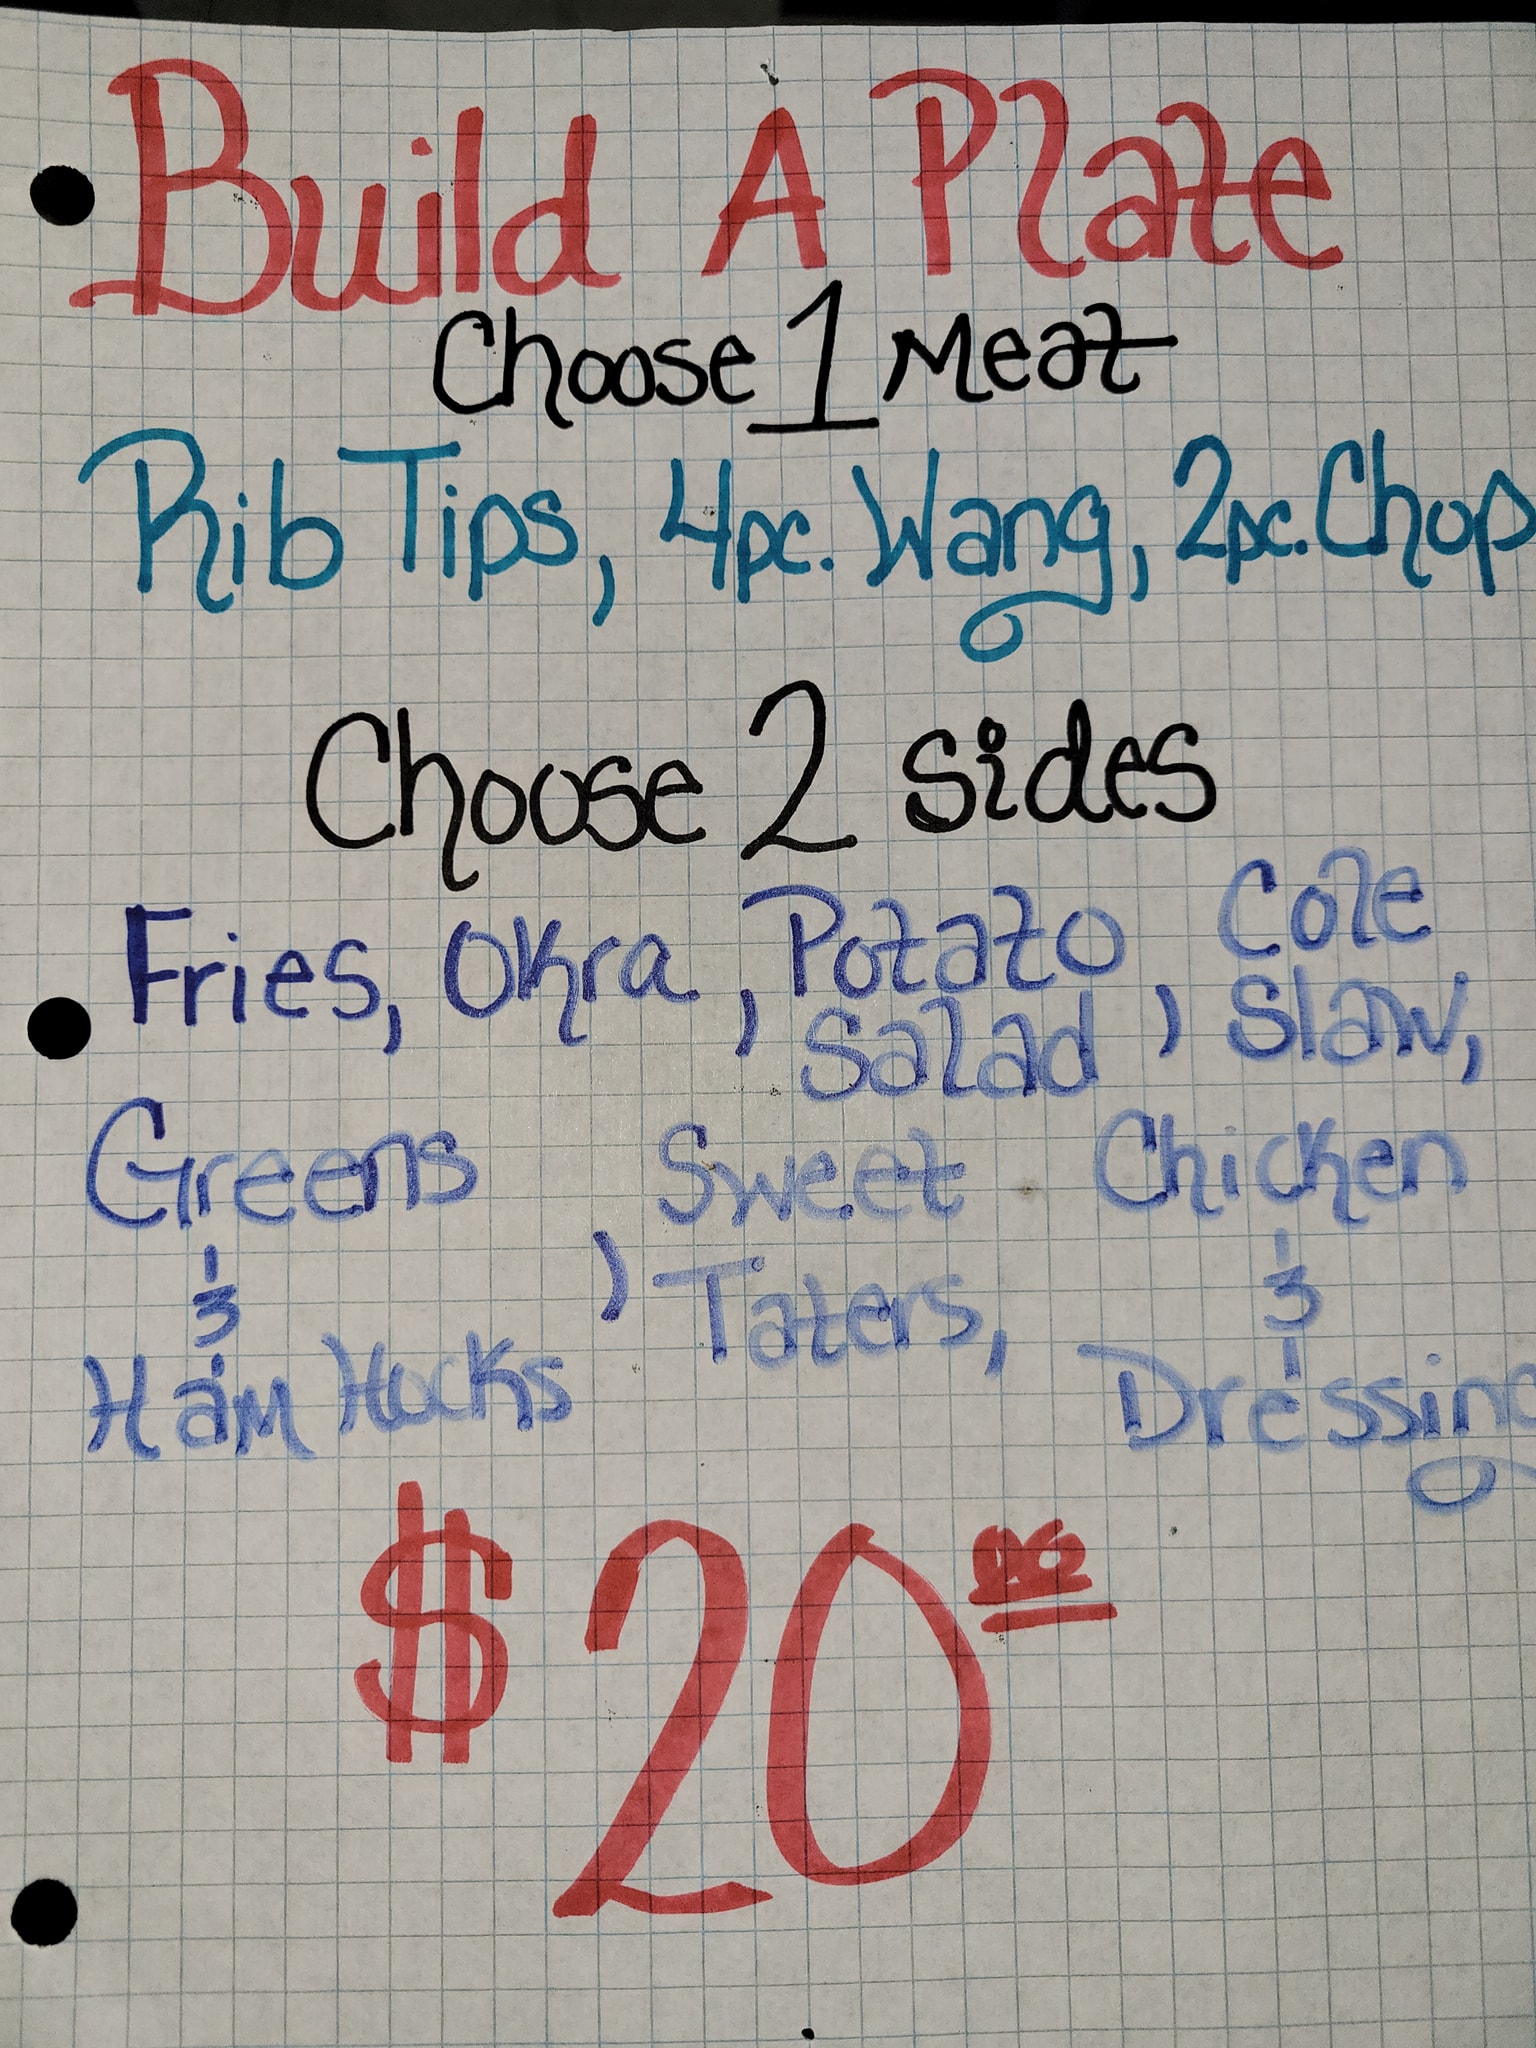 Build A Plate
Choose 1 Meat
Rib Tips, 4pc. Wang, 2pc. Chop
Choose 2 sides
Fries, Okra, Potato Salad, Cole Slaw,
Greens & Ham Hocks, Sweet Taters, Chicken & Dressing
$20.00